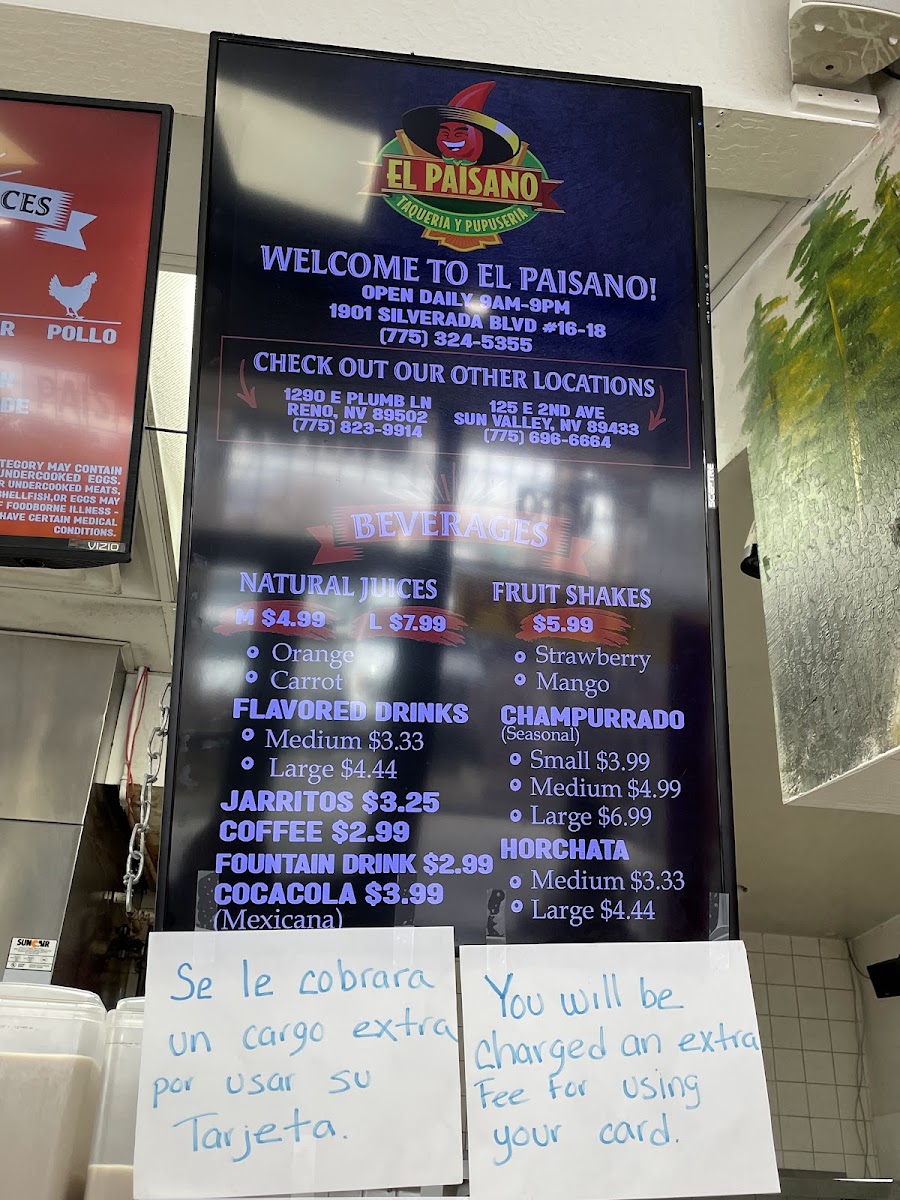 CES
R POLLO
DE
TEGORY MAY CONTAIN
UNDERCOOKED EGGS.
R UNDERCOOKED MEATS,
SHELLFISH,OR EGGS MAY
F FOODBORNE ILLNESS -
HAVE CERTAIN MEDICAL
CONDITIONS.
VIZIO
EL PAISANO
TAQUERIA Y PUPUSERIA
WELCOME TO EL PAISANO!
OPEN DAILY 9AM-9PM
1901 SILVERADA BLVD #16-18
(775) 324-5355
CHECK OUT OUR OTHER LOCATIONS
1290 E PLUMB LN
RENO, NV 89502
(775) 823-9914
125 E 2ND AVE
SUN VALLEY, NV 89433
(775) 696-6664
BEVERAGES
NATURAL JUICES
M $4.99 L $7.99
Orange
Carrot
FLAVORED DRINKS
Medium $3.33
Large $4.44
JARRITOS $3.25
COFFEE $2.99
FOUNTAIN DRINK $2.99
COCACOLA $3.99
(Mexicana)
FRUIT SHAKES
$5.99
Strawberry
Mango
CHAMPURRADO
(Seasonal)
Small $3.99
Medium $4.99
Large $6.99
HORCHATA
Medium $3.33
Large $4.44
Se le cobrara
un cargo extra
por usar su
Tarjeta.
You will be
charged an extra
Fee For using
your card.